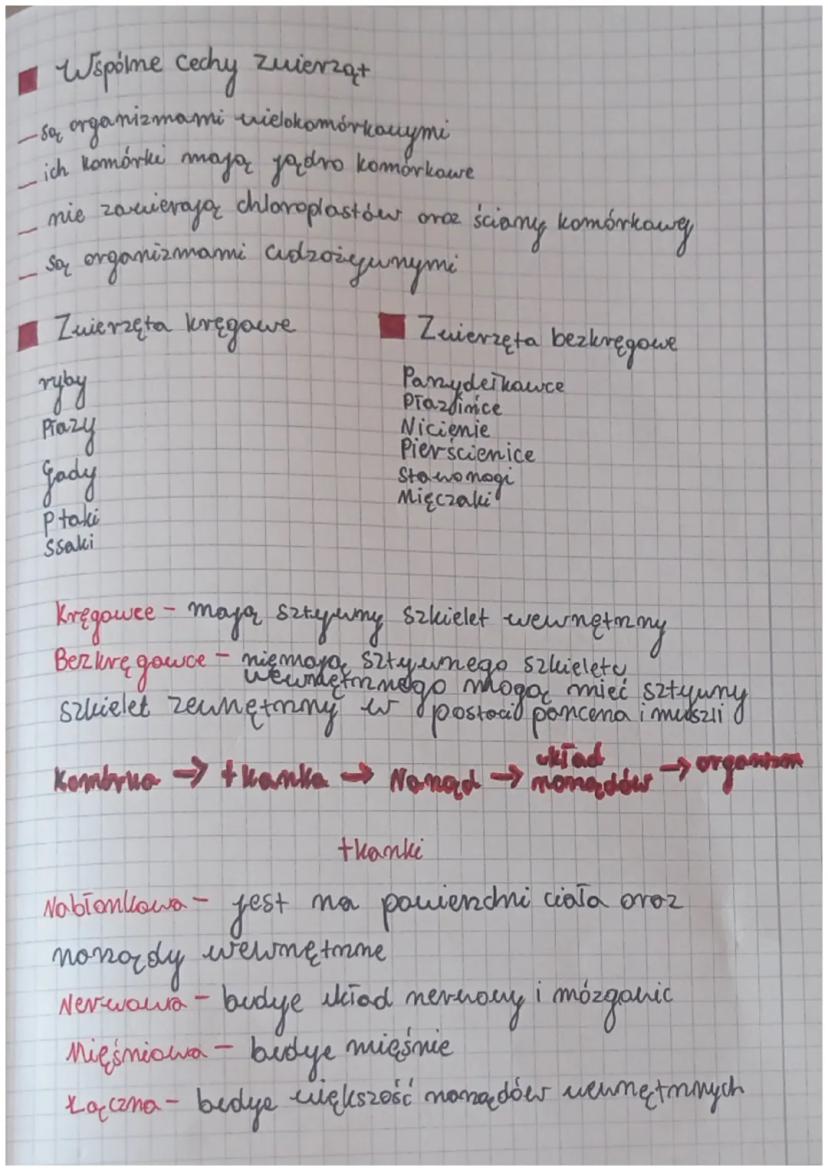 Wspólne cechy zwierząt
- są organizmami wielokomórkowymi
- ich komórki mają jądro komórkowe
- nie zawierają chloroplastów oraz ściany komórkowej
- są organizmami cudzożywnymi
Zwierzęta kręgowe
ryby
Płazy
gady
Ptaki
ssaki
Zwierzęta bezkręgowe
Parzydełkowce
Płazińce
Nicienie
Pierścienice
Stawonogi
Mięczaki
Kręgowce - mają sztywny szkielet wewnętrzny
Bezkręgowce - niemają sztywnego szkieletu
wewnętrznego mogą mieć sztywny
szkielet zewnętrzny w postaci pancerza i muszli
Komórka → tkanka → Narząd → układ narządów → organizm
tkanki
Nabłonkowa - jest na powierzchni ciała oraz
narządy wewnętrzne
Nerwowa - buduje układ nerwowy i mózgowie
Mięśniowa - buduje mięśnie
Łączna - buduje większość narządów wewnętrznych